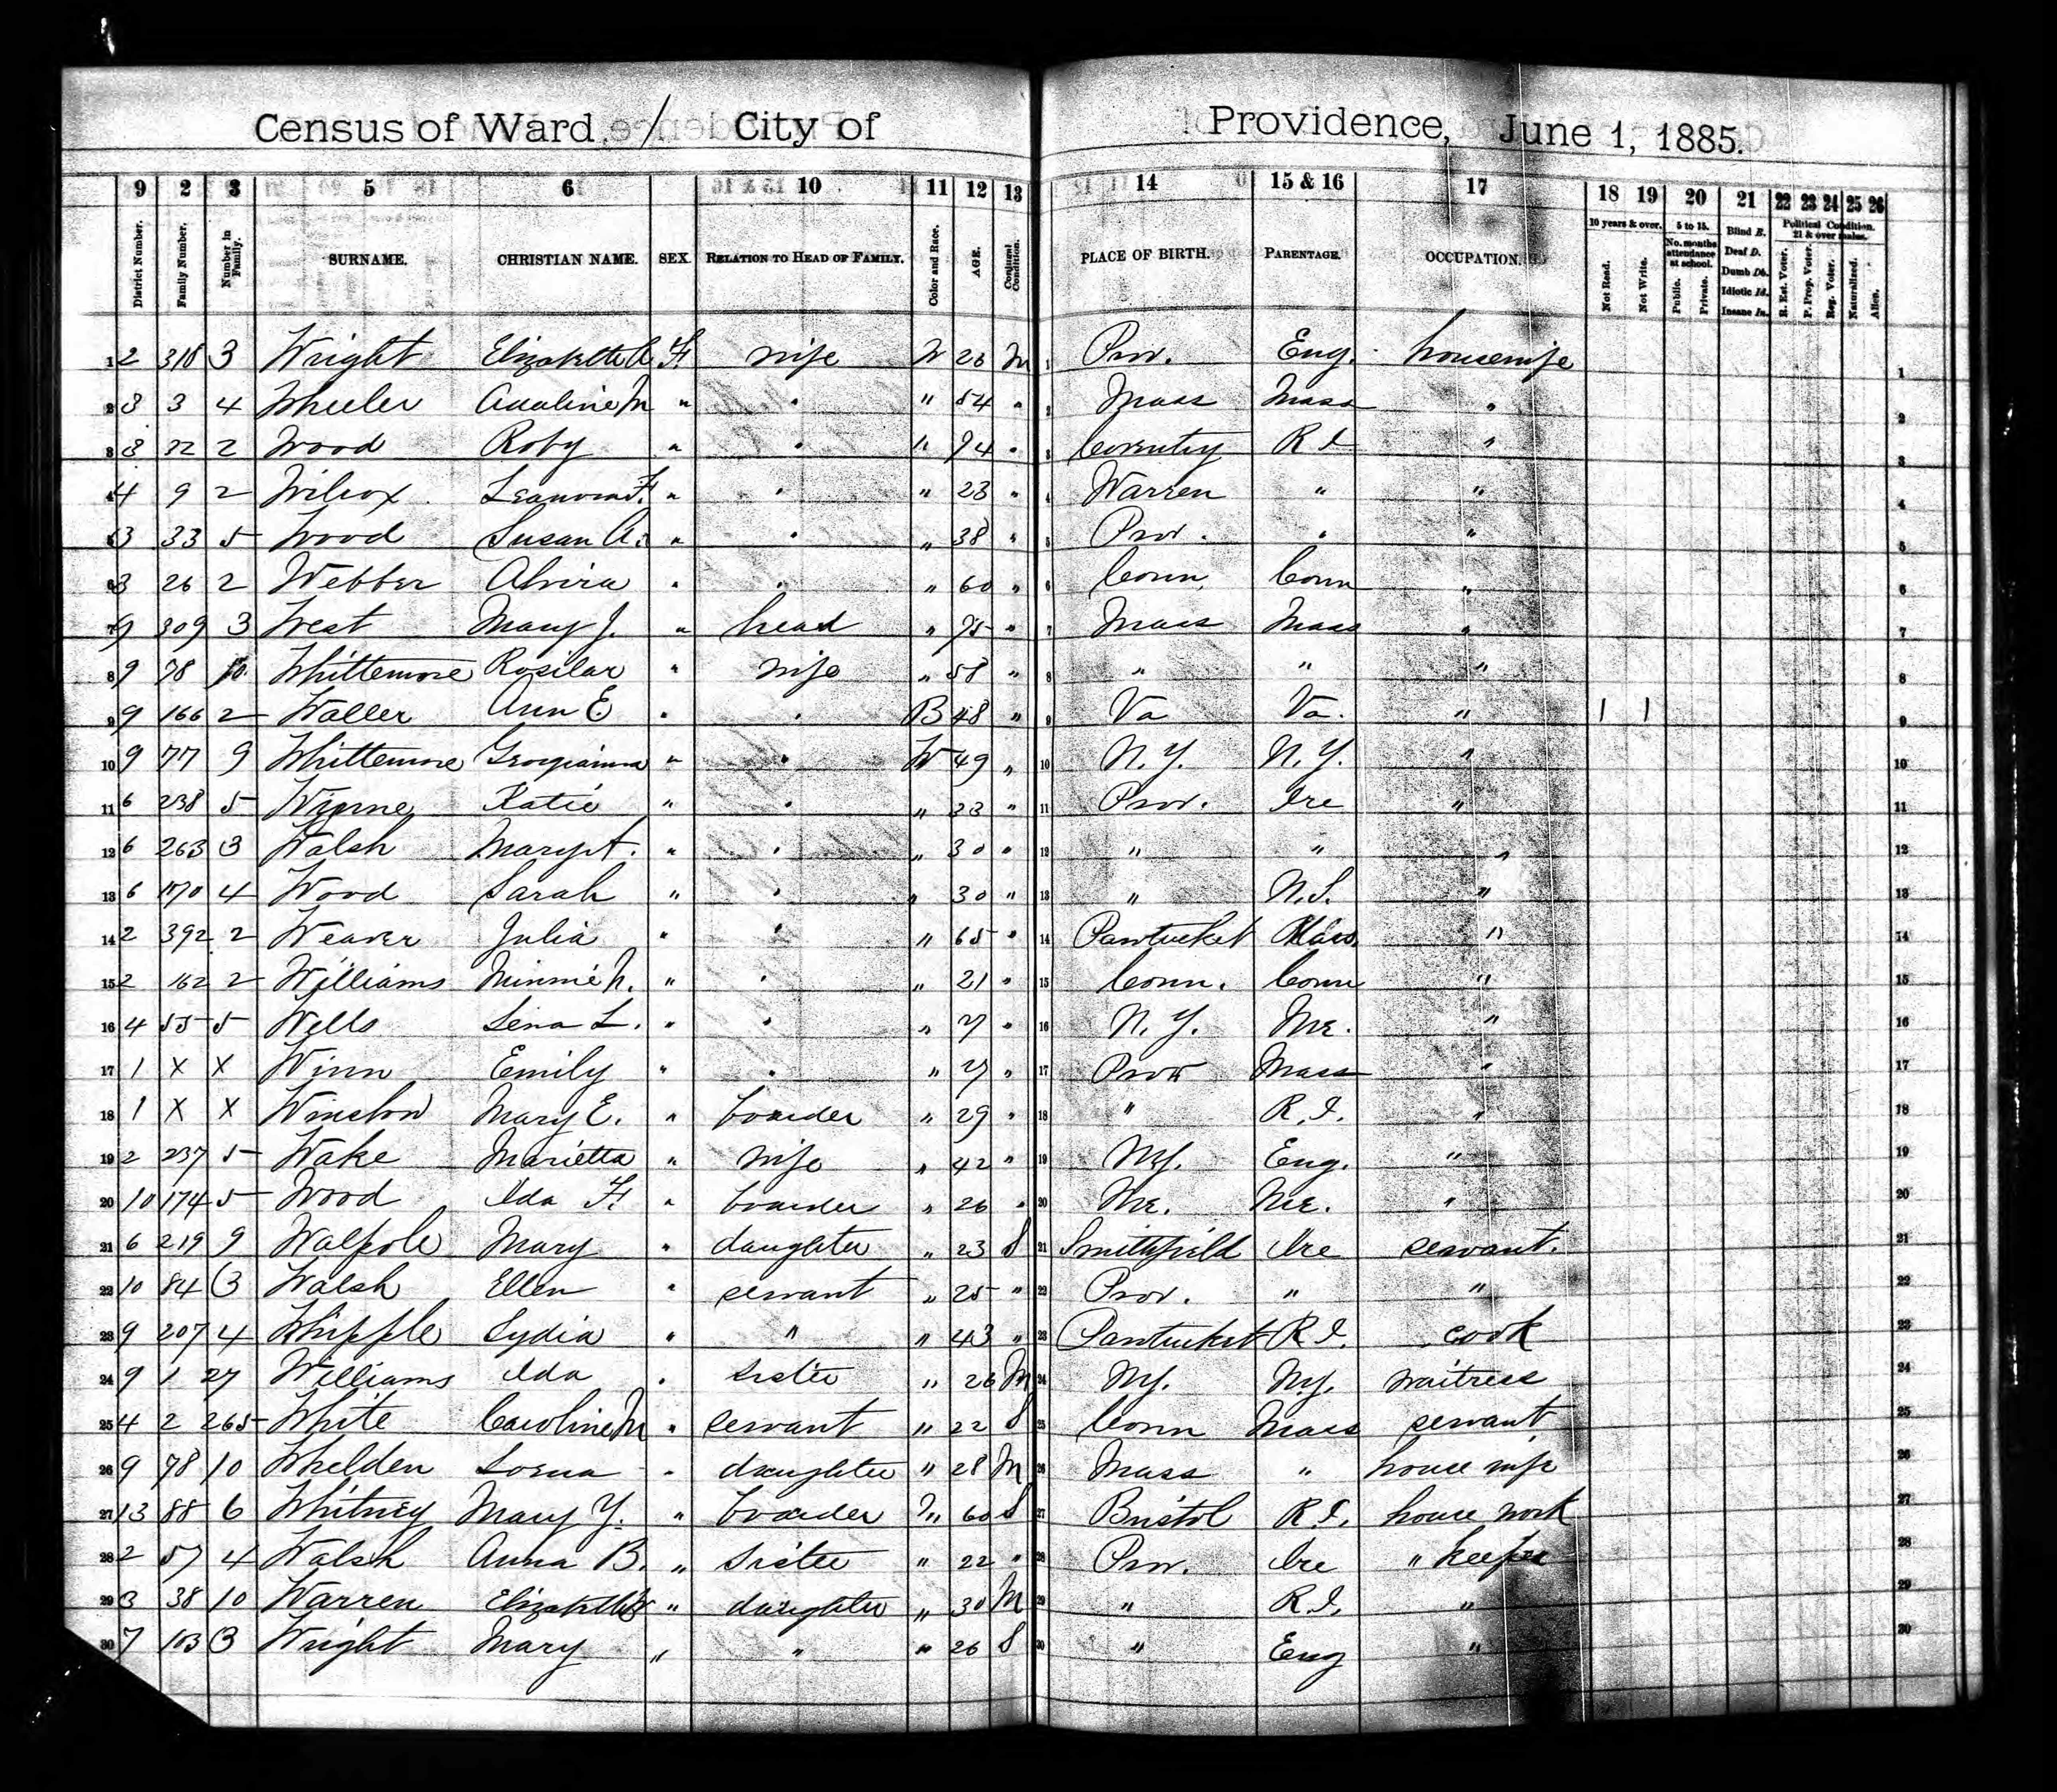 Census of Ward 1 City of Providence, June 1, 1885.
9 2 3 5 6 10 11 12 13 14 15 & 16 17 18 19 20 21 22 23 24 25 26
District Number. Family Number. Number in Family. SURNAME. CHRISTIAN NAME. SEX. RELATION TO HEAD OF FAMILY. Color and Race. AGE. Conjugal Condition. PLACE OF BIRTH. PARENTAGE. OCCUPATION. 10 years & over. Not Read. Not Write. 5 to 15. No. months attendance at school. Public. Private. Blind B. Deaf D. Dumb Db. Idiotic Id. Insane In. Political Condition. 21 & over males. R. Est. Voter. P. Prop. Voter. Reg. Voter. Naturalized. Alien.
1 2 318 3 Wright Elizabeth A F wife W M 1 Prov. Eng. housewife 1
2 3 3 4 Wheeler Adaline M " " " 54 " 2 Mass Mass " 2
3 3 22 2 Wood Roby " " " 74 " 3 Coventry R I " 3
4 4 9 2 Wilcox Leanora F. " " " 23 " 4 Warren " " 4
5 3 33 5 Wood Susan A. " " " 38 " 5 Prov. " " 5
6 3 26 2 Webber Alvira " " " 60 " 6 Conn. Conn " 6
7 9 309 3 West Mary J. " head " 75 " 7 Mass Mass " 7
8 9 78 10 Whittemore Rosilar " wife " 58 " 8 " " " 8
9 9 166 2 Waller Ann E " " B 48 " 9 Va Va. " 1 1 9
10 9 77 9 Whittemore Georgianna " " W 49 " 10 N.Y. N.Y. " 10
11 6 238 5 Katie " " " 33 " 11 Prov. Ire " 11
12 6 263 3 Walsh Mary A. " " " 30 " 12 " " " 12
13 6 170 4 Wood Sarah " " " 30 " 13 " N.S. " 13
14 2 392 2 Weaver Julia " " " 65 " 14 Pawtucket Mass. " 14
15 2 162 2 Williams Minnie N. " " " 21 " 15 Conn. Conn " 15
16 4 55 5 Wells Lena L. " " " 27 " 16 N.Y. Me. " 16
17 1 X X Winn Emily " " " 27 " 17 Prov Mass " 17
18 1 X X Winslow Mary E. " boarder " 29 " 18 " R.I. " 18
19 2 237 5 Wake Marietta " wife " 42 " 19 NY. Eng. " 19
20 10 174 5 Wood Ida F. " boarder " 26 " 20 Me. Me. " 20
21 6 219 9 Walpole Mary " daughter " 23 S 21 Smithfield Ire servant. 21
22 10 84 3 Walsh Ellen " servant " 25 " 22 Prov. " " 22
23 9 207 4 Whipple Lydia " " " 43 " 23 Pawtucket R.I. cook 23
24 9 1 27 Williams Ida " sister " 26 M 24 NY. NY. waitress 24
25 4 2 265 White Caroline M " servant " 22 S 25 Conn Mass servant 25
26 9 78 10 Whelden Lorna " daughter " 28 M 26 Mass " house wife 26
27 13 88 6 Whitney Mary Y. " boarder " 60 S 27 Bristol R.I. house work 27
28 2 57 4 Walsh Anna B. " sister " 22 " 28 Prov. Ire " keeper 28
29 3 38 10 Warren Elizabeth " daughter " 30 M 29 " R.I. " 29
30 7 103 3 Wright Mary " " " 26 S 30 " Eng " 30